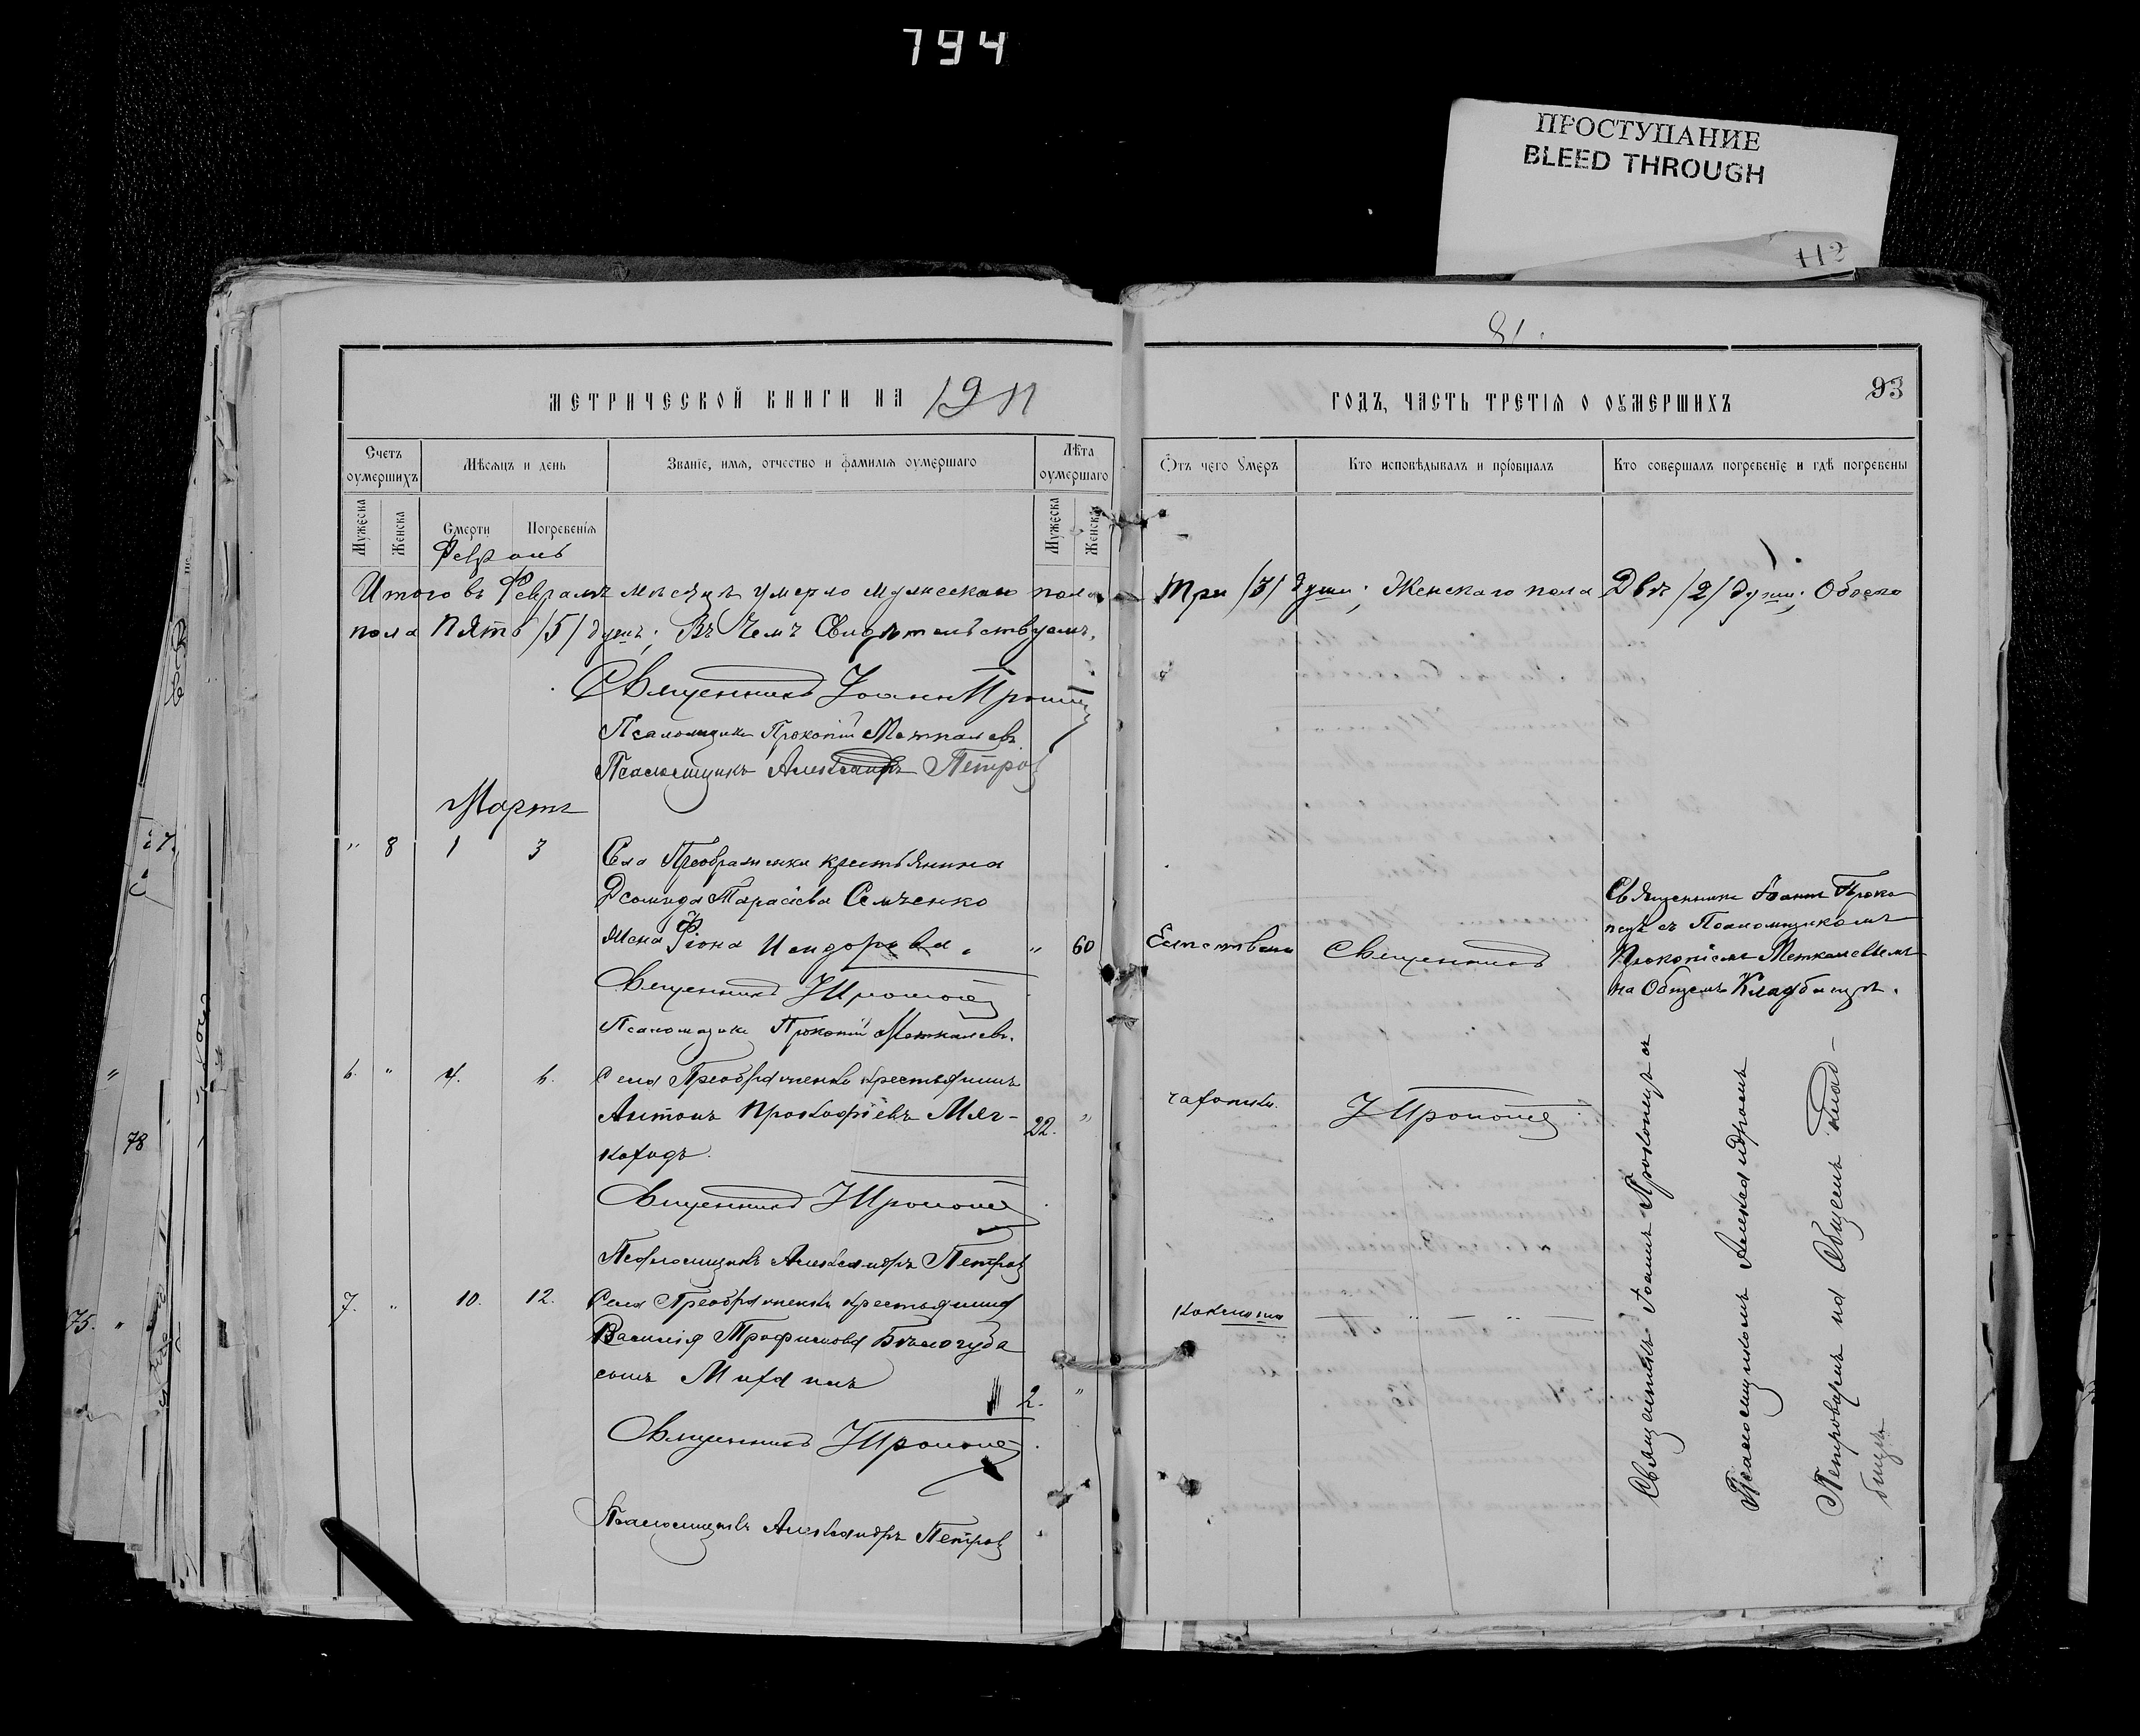 794
ПРОСТУПАНИЕ
BLEED THROUGH
112
81.
МЕТРИЧЕСКОЙ КНИГИ НА 1911
ГОДЪ, ЧАСТЬ ТРЕТІЯ О ОУМЕРШИХЪ
93
Счетъ оумершихъ
Мѣсяцъ и день
Званіе, имя, отчество и фамилія оумершаго
Лѣта оумершаго
Отъ чего умеръ
Кто исповѣдывалъ и пріобщалъ
Кто совершалъ погребеніе и гдѣ погребены
Мужеска
Женска
Смерти
Погребенія
Мужеска
Женска
Февраль
Итого въ Февралѣ мѣсяцѣ умерло мужескаго пола Три /3/ души; Женскаго пола Двѣ /2/ души; Обоего
пола Пять /5/ душъ; Въ Чемъ Свидѣтельствуемъ.
Священникъ Іоаннъ
Псаломщикъ Прокопій Меткалевъ
Псаломщикъ Александръ Петровъ
Мартъ
" 8 1 3 Села Преображенки крестьянина
Тарасіева Семченко
жена Фіона Исидорова. " 60 Естествен Священникъ
Священникъ І Прокопецъ
Псаломщикъ Прокопій Меткалевъ.
Священникъ Іоаннъ Проко
пецъ съ Псаломщикомъ
Прокопіемъ Меткалевымъ
на Общемъ Кладбищѣ.
6. " 4. 6. Села Преображенки крестьянинъ
Антонъ Прокофіевъ Мяг- 22. " чахотки. І Прокопецъ
коходъ.
Священникъ І Прокопецъ
Псаломщикъ Александръ Петровъ
7. " 10. 12. Села Преображенки крестьянина
Василія Трофимова Бѣлогуба коклюша — " — " —
сынъ Михаилъ 2. "
Священникъ І Прокопецъ
Псаломщикъ Александръ Петровъ
Священникъ Іоаннъ Прокопецъ съ
Псаломщикомъ Александромъ
Петровымъ на Общемъ Клад-
бищѣ
78
75. "